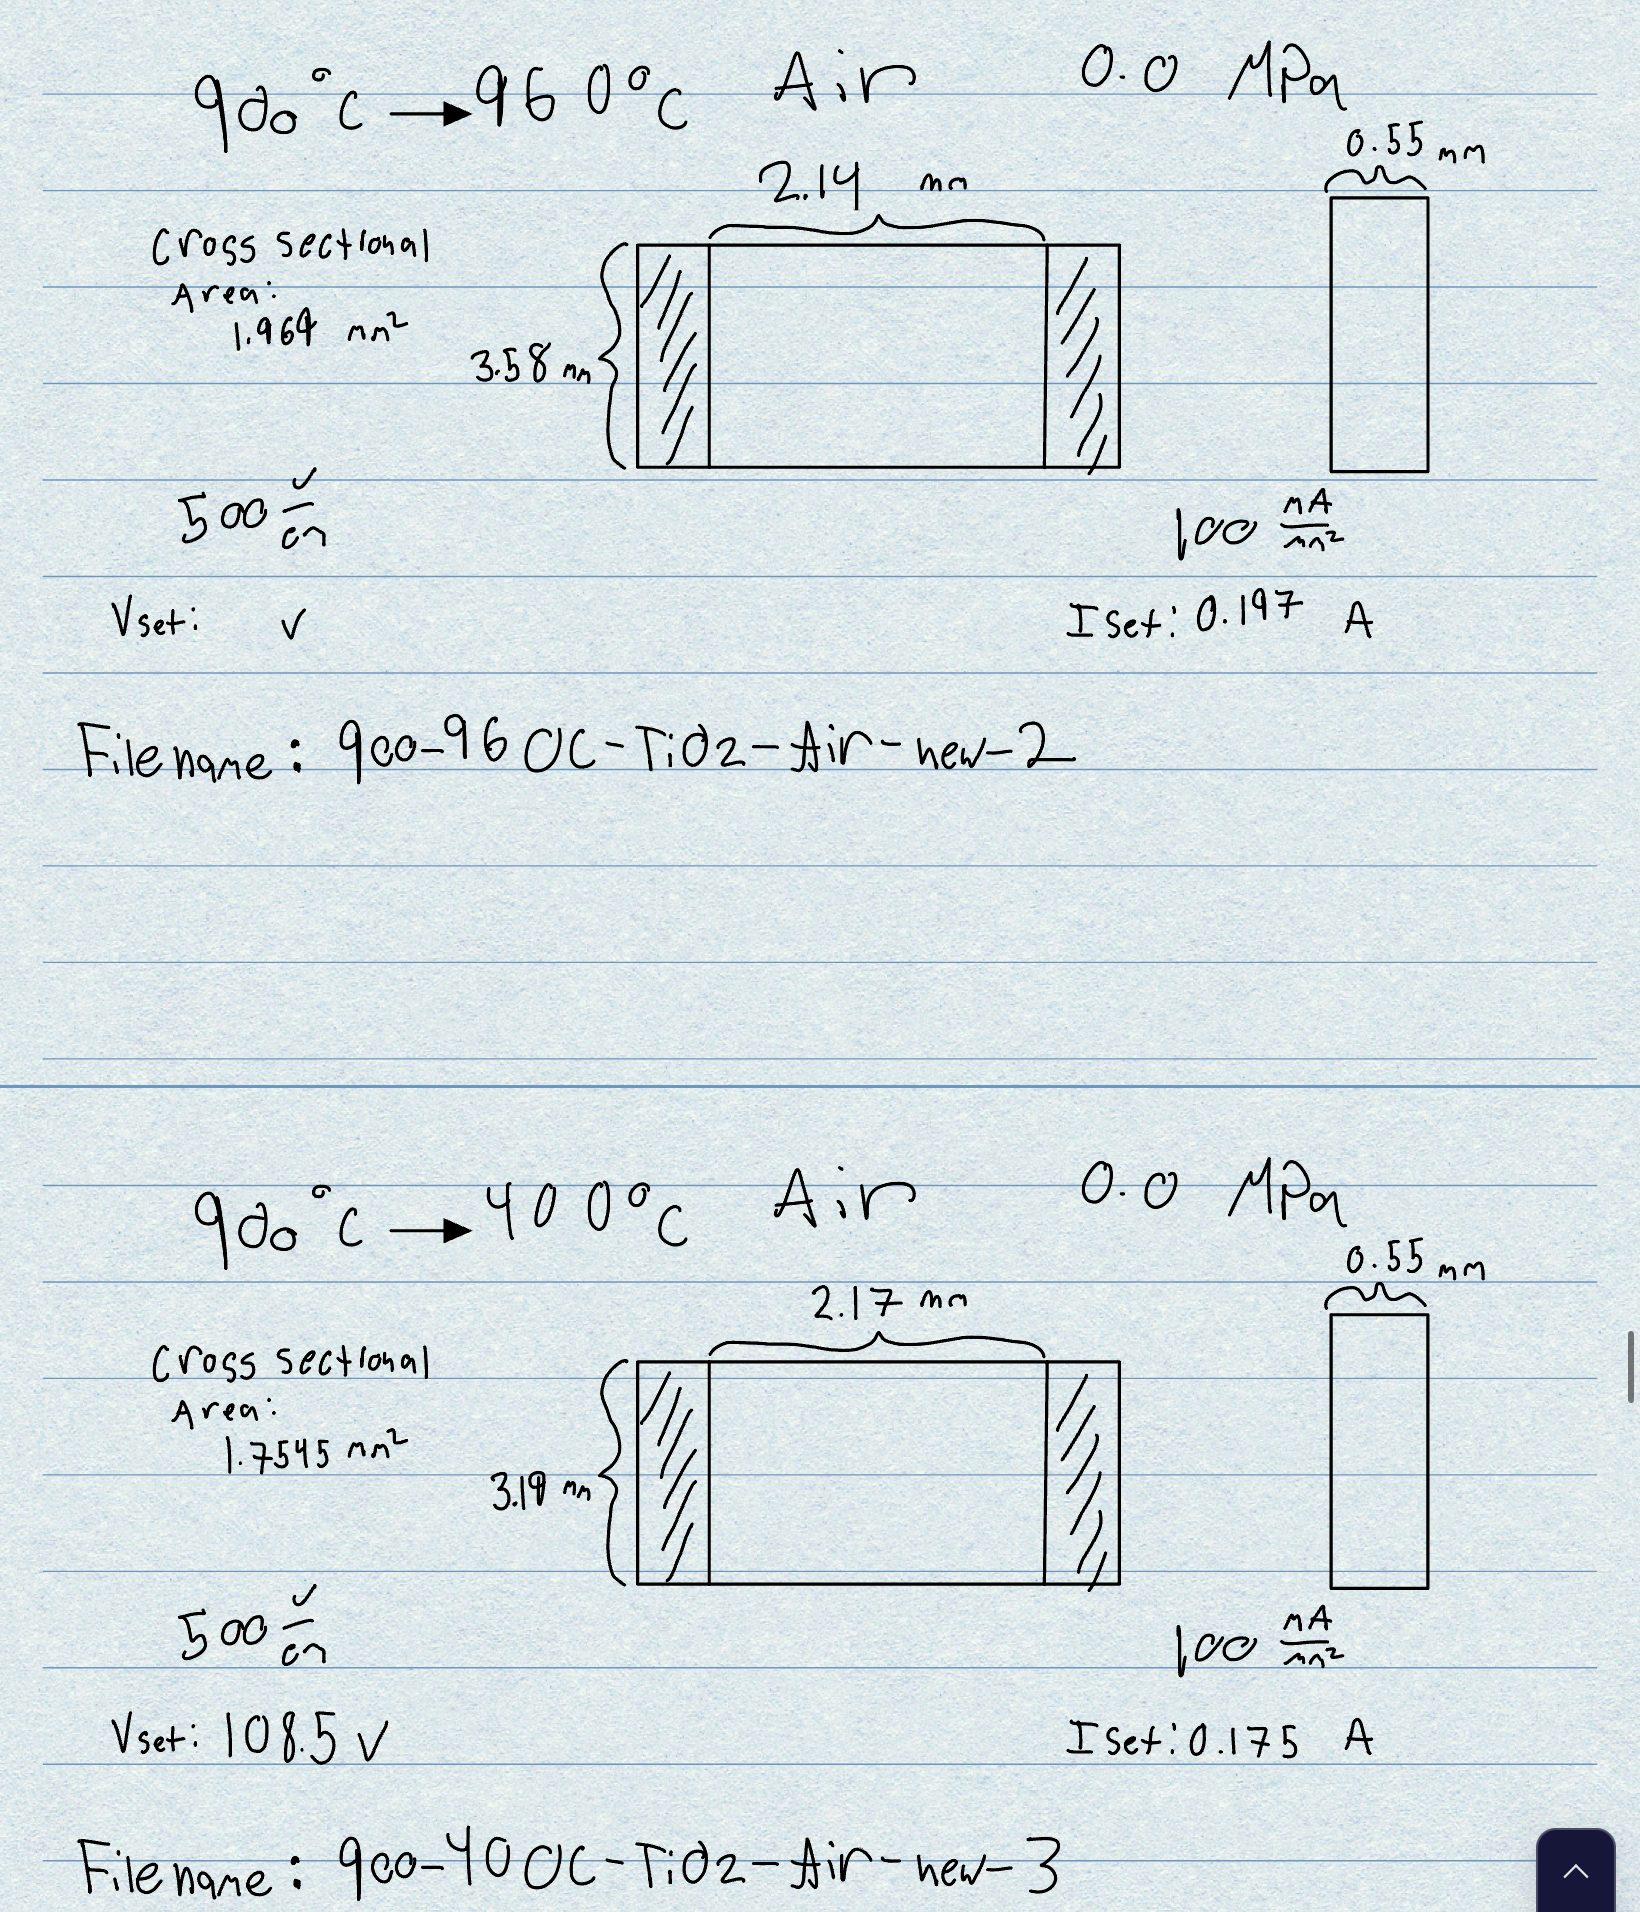 900°C → 960°C Air 0.0 MPa
0.55 mm
2.14 mm
Cross sectional
Area:
1.969 mm²
3.58 mm
500 V/cm
100 mA/mm²
Vset: V
I set: 0.197 A
Filename: 900-960C-TiO2-Air-new-2
900°C → 400°C Air 0.0 MPa
0.55 mm
2.17 mm
Cross sectional
Area:
1.7545 mm²
3.19 mm
500 V/cm
100 mA/mm²
Vset: 108.5 V
I set: 0.175 A
Filename: 900-400C-TiO2-Air-new-3